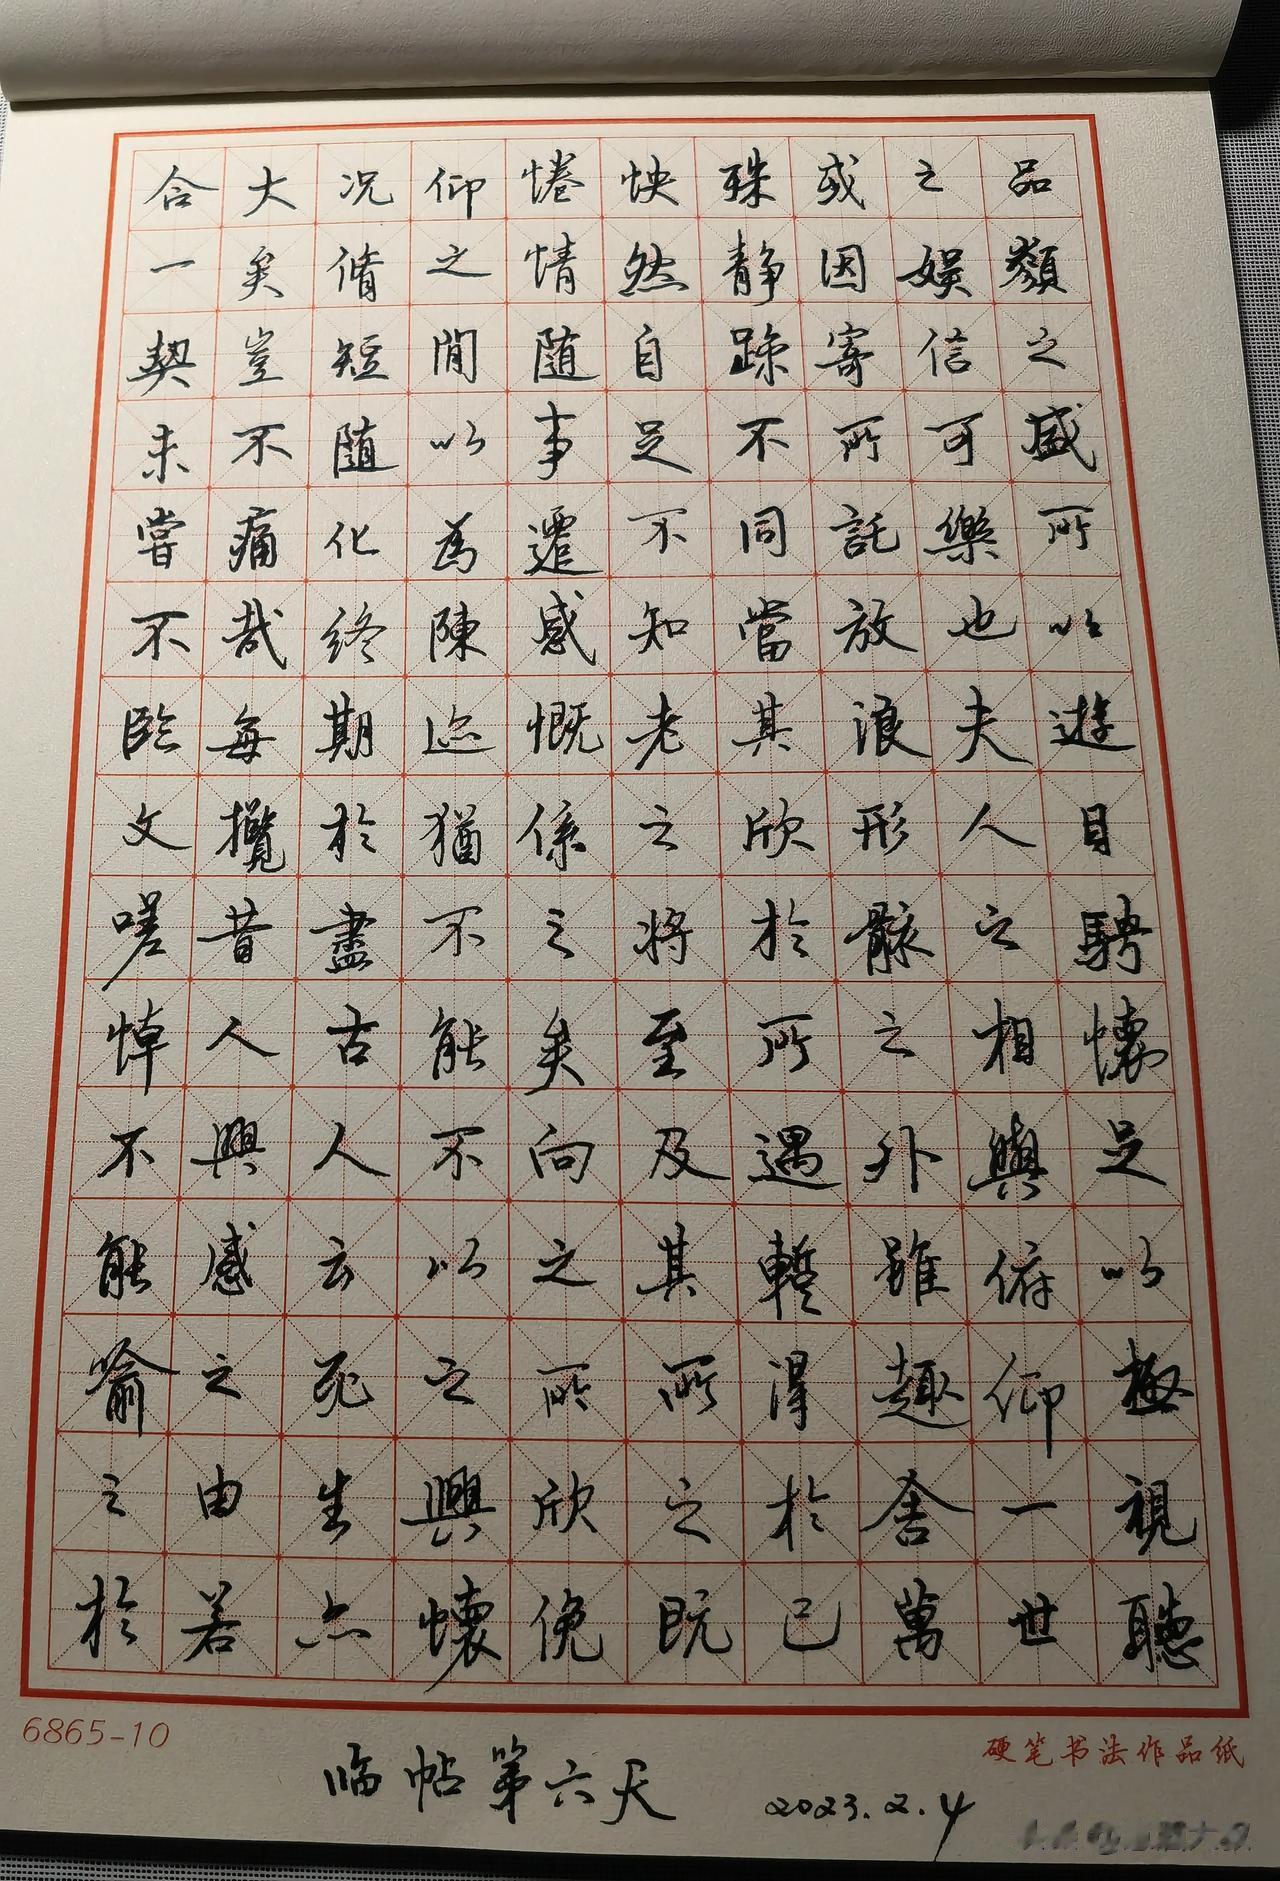 品類之盛所以遊目騁懷足以極視聽
之娱信可樂也夫人之相與俯仰一世
或因寄所託放浪形骸之外雖趣舍萬
殊静躁不同當其欣於所遇蹔得於己
怏然自足不知老之将至及其所之既
惓情随事遷感慨係之矣向之所欣俛
仰之間以為陳迹猶不能不以之興懷
况脩短隨化終期於盡古人云死生亦
大矣豈不痛哉每攬昔人興感之由若
合一契未嘗不臨文嗟悼不能喻之於
6865-10
硬笔书法作品纸
临帖第六天
2023.2.4